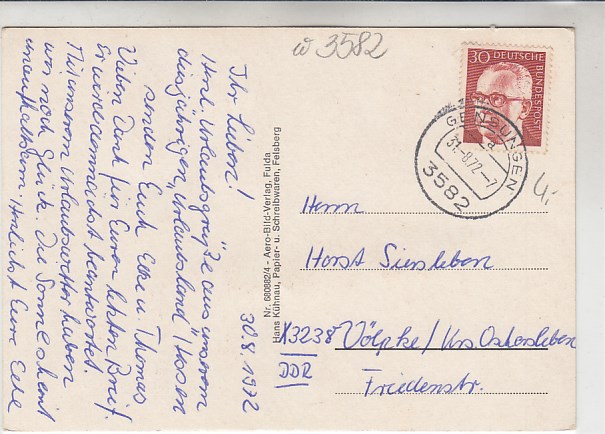 w 3582
30 DEUTSCHE BUNDESPOST
GENSUNGEN
a
31.-8.72.-7
3582
4,-
Ihr Lieben!
30.8.1972
Herzl. Urlaubsgrüße aus unserem
diesjährigen „Urlaubsland" Hessen
senden Euch Elke u. Thomas
Vielen Dank für Euren letzten Brief.
Er wird demnächst beantwortet.
Mit unserem Urlaubswetter haben
wir noch Glück. Die Sonne scheint
unaufhaltsam. Herzlichst Eure Elke
Nr. 680882/4 - Aero-Bild-Verlag, Fulda
Hans Kühnau, Papier- u. Schreibwaren, Felsberg
Herrn
Horst Siersleben
X3238 Völpke/Krs. Oschersleben
DDR
Friedenstr.